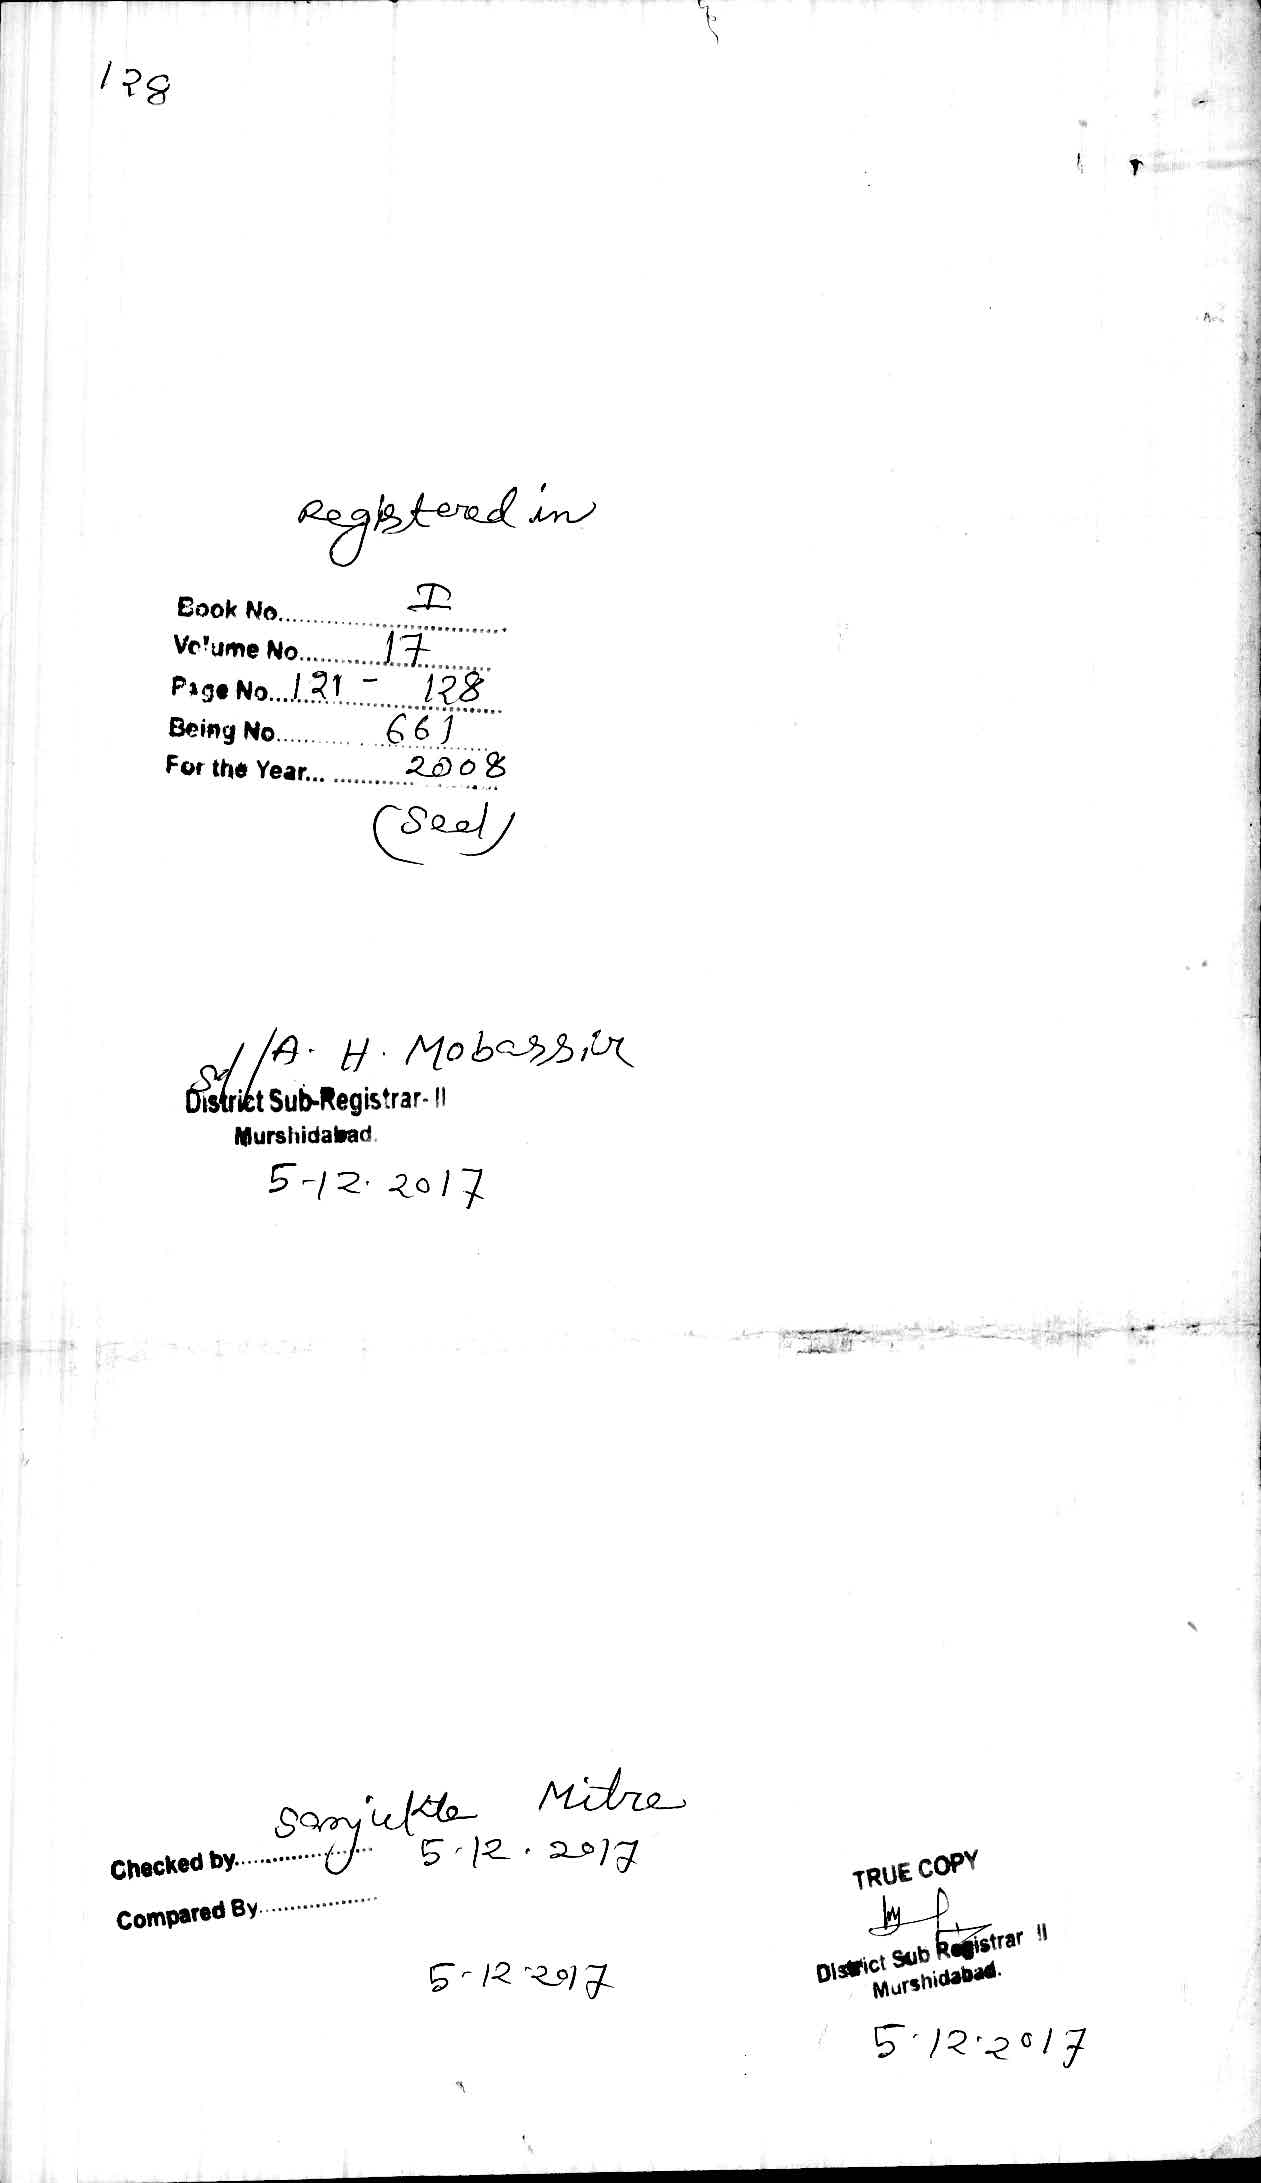 128
Registered in
Book No.................I
Volume No............17
Page No...121 - 128
Being No............661
For the Year...............2008
(Seal)
Sd//A. H. Mobassir
District Sub-Registrar-II
Murshidabad.
5-12.2017
Sanjukta Mitra
Checked by.................... 5.12.2017
Compared By...................
5-12-2017
TRUE COPY
District Sub Registrar II
Murshidabad.
5.12.2017